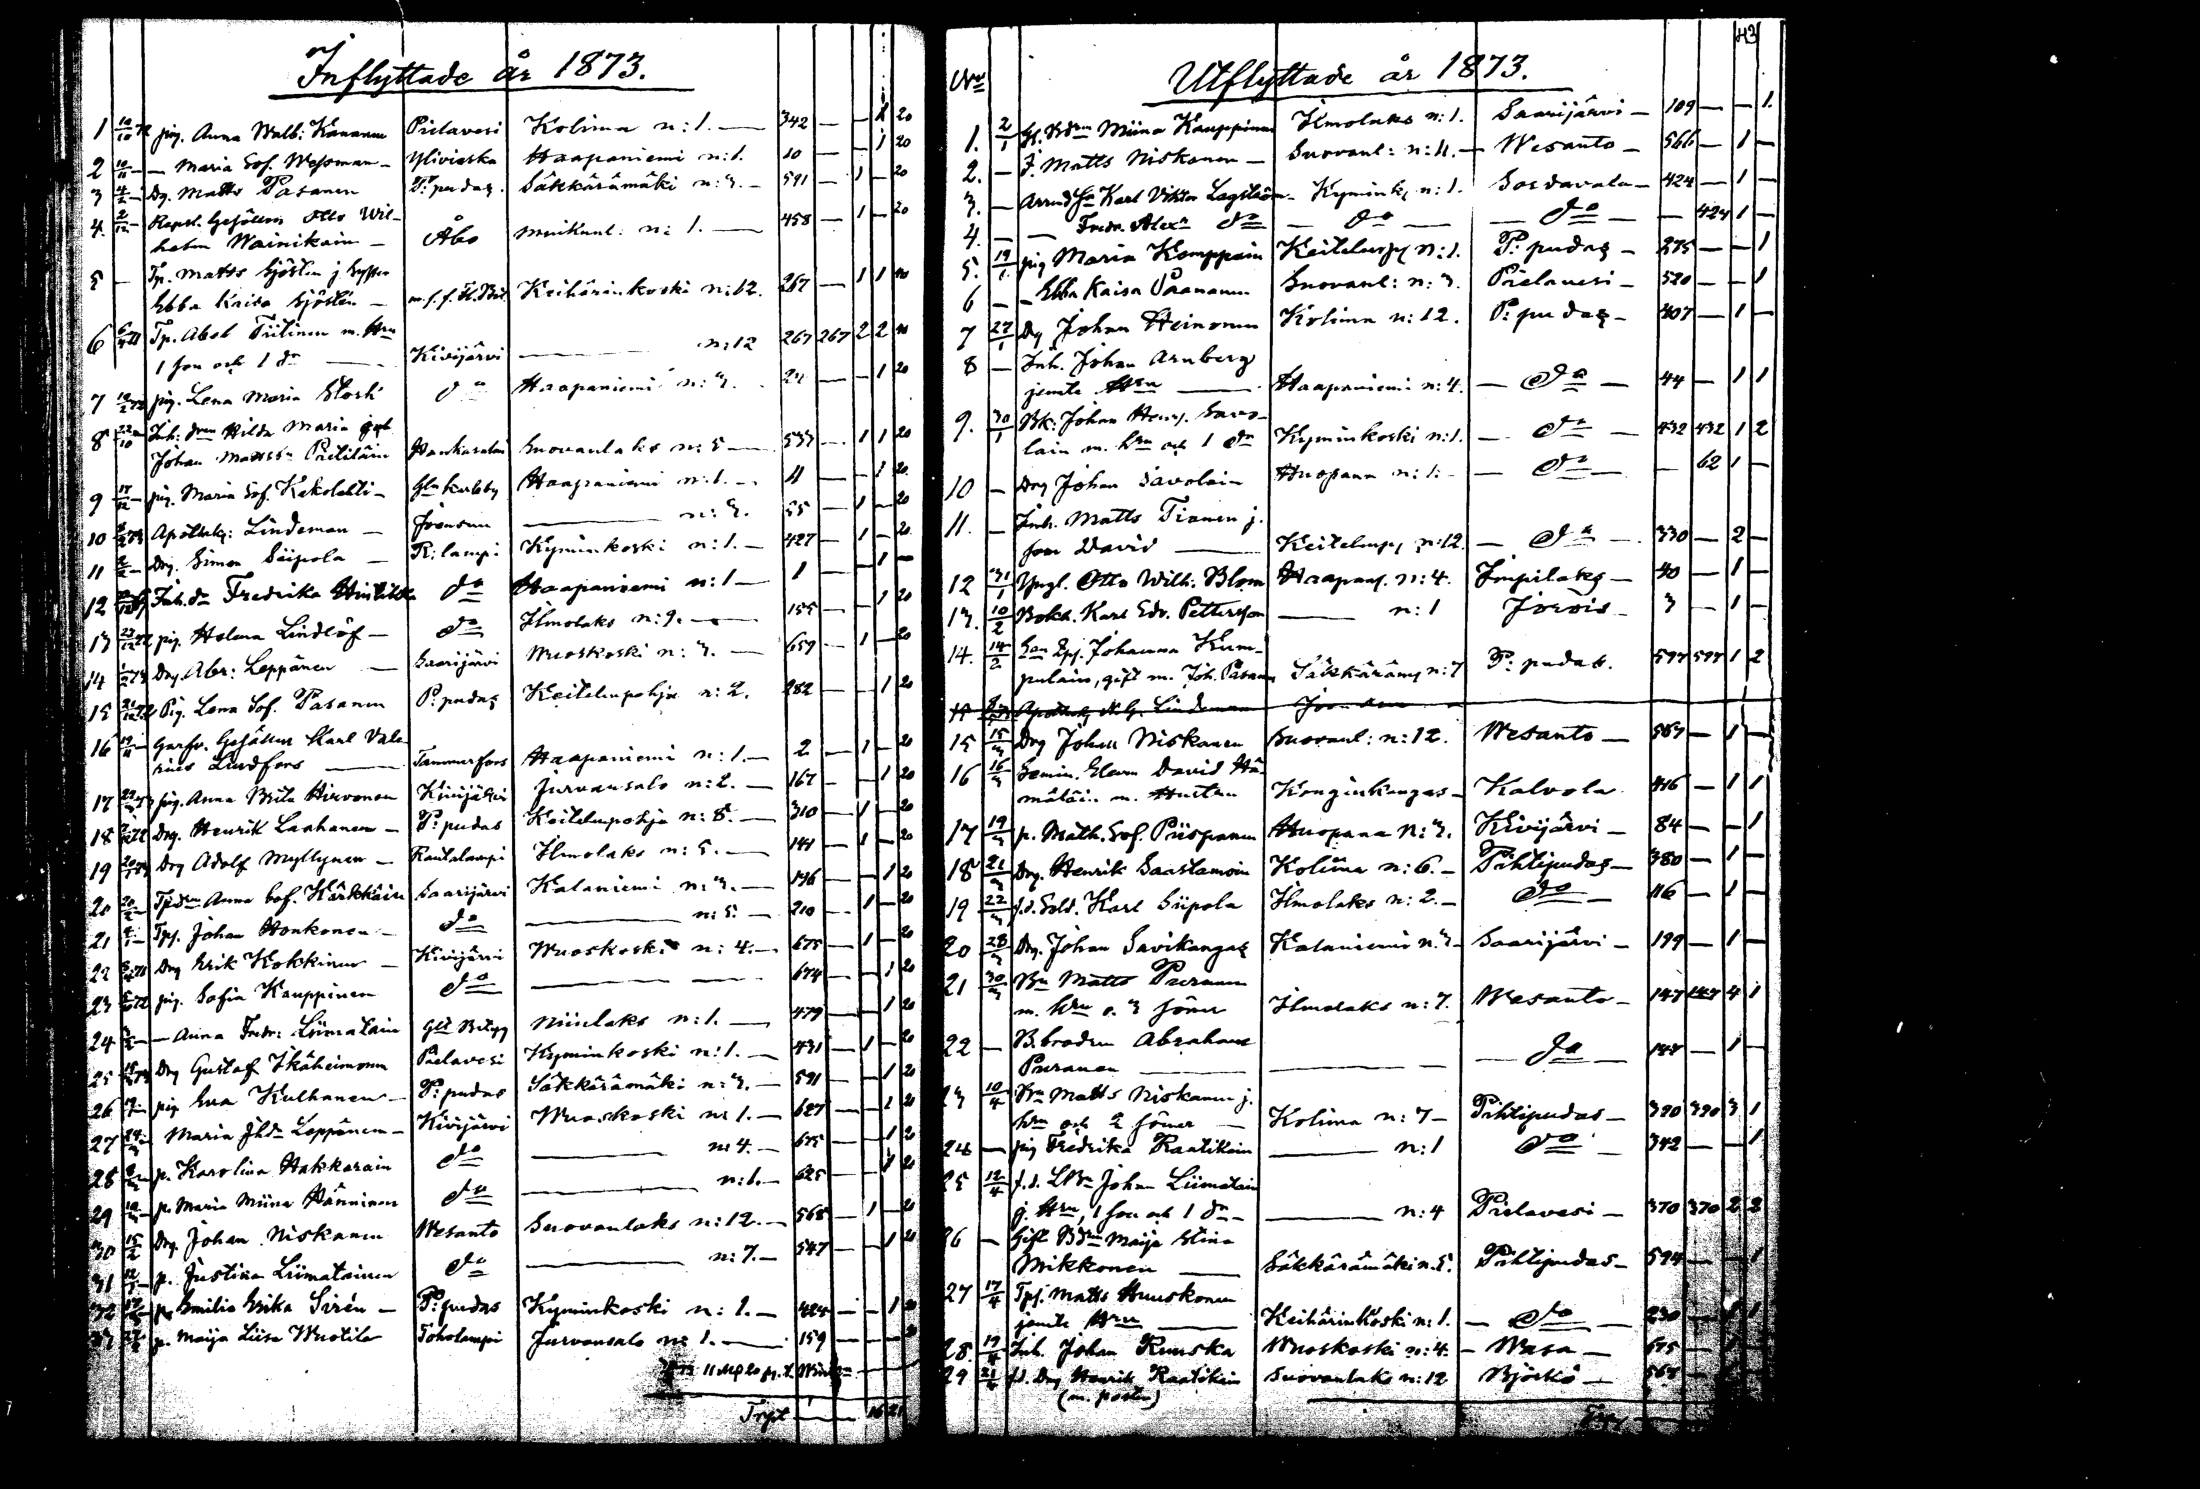 Inflyttade år 1873.
1 10/10 72 pig. Anna Walb: Kananen Pielavesi Kolima n:1. — 342 — — 1 20
2 10/11 — — Maria Sof. Wessman — Ylivieska Haapaniemi n:1. 10 — — 1 20
3 4/2 — Dg. Matts Pasanen P:pudas. Säkkärämäki n:3. — 591 — 1 — 20
4. 2/12 — Repsl. Gesällen Otto Wil-
helm Wainikain — Åbo Muikunl: n: 1. — 458 — 1 — 20
5 — Tp. Matts Sjöstén j.
Ebba Kaisa Sjöstén — Keihärinkoski n:12. 267 — 1 1 40
6 Tp. Abel Tiitinen m. Hru
1 son och 1 dr — Kivijärvi — n:12 267 267 2 2 40
7 pig. Lena Maria do Haapaniemi n:3. 24 — — 1 20
8 22/10 Inh: Hilda Maria
Johan Mattss: Pietiläin Hankasalmi Suovanlaks n: 5 — 533 — 1 1 20
9 pig. Maria Sof. Kekolahti — Gla Karleby Haapaniemi n:1. — 11 — — 1 20
10 Apothek: Lindeman — Joensuu — n:3. 55 — 1 — 20
11 Dg. Simon Siipola — R:lampi Kyminkoski n:1. — 427 — 1 — 20
12 Inh. dr Fredrika do Haapaniemi n:1 — 1 — — 1 —
13 23/12 72 pig. Helena Lindlöf — do Ilmolaks n:9. — 155 — — 1 20
14 Dg. Abr: Leppänen — Saarijärvi Wuoskoski n: 3. — 659 — 1 — 20
15 21/12 72 Pig. Lena Sof. Pasanen P:pudas Keitelenpohja n:2. 282 — — 1 20
16 Garfv. Gesällen Karl Vale-
rius Lindfors — Tammerfors Haapaniemi n:1. — 2 — 1 — 20
17 pig. Anna Brita Hirvonen Kivijärvi Jurvansalo n:2. — 167 — — 1 20
18 Dg. Henrik Laahanen — P:pudas Keitelenpohja n:8. — 310 — 1 — 20
19 Dg Adolf Myllynen — Rautalampi Ilmolaks n:5. — 141 — 1 — 20
20 20/2 — Anna Sof. Kärkkäin Saarijärvi Kalaniemi n:3. — 196 — — 1 20
21 Tpj. Johan Honkonen — do — n:5. — 210 — 1 — 20
22 Dg Erik Kokkinen — Kivijärvi Wuoskoski n: 4. — 675 — 1 — 20
23 pig. Sofia Kauppinen do — — 674 — — 1 20
24 — Anna Fredr: Liimatain Niinilaks n:1. — 479 — — 1 20
25 Dg Gustaf Ikäheimonen Pielavesi Kyminkoski n:1. — 431 — 1 — 20
26 pig Eva Kulhanen — P:pudas Säkkärämäki n:3. — 591 — — 1 20
27 Maria Jhdr Leppänen — Kivijärvi Wuoskoski n: 1. — 627 — — 1 20
28 p. Karolina Hakkarain do — n: 4. — 675 — — 1 20
29 p. Maria Miina Hänninen do — n:1. — 625 — — 1 20
30 15/2 Dg. Johan Niskanen Wesanto Suovanlaks n:12. — 568 — 1 — 20
31 p. Justina Liimatainen do — n:7. — 547 — — 1 20
32 p. Emilia Erika Sirén — P:pudas Kyminkoski n: 1. — 424 — — 1 20
33 p. Maija Liisa Wuotila Toholampi Jurvansalo n: 1. — 159 — — 20
Trpt — 16 21
43
No Utflyttade år 1873.
1. 2/1 Miina Kauppinen Ilmolaks n:1. Saarijärvi — 109 — — 1.
2. — J. Matts Niskanen — Suovanl: n:11. — Wesanto — 566 — 1 —
3. — Karl Viktor Lagström — Kymink. n:1. Sordavala — 424 — 1 —
4. — Fredr. Alexr do — do — — do — — 424 1 —
5. 19/1 pig Maria Kemppain Keitelenp. n:1. P:pudas — 275 — — 1
6 — — Ebba Kaisa Paananen Suovanl: n: 3. Pielavesi — 520 — — 1
7 27/1 Dg Johan Heinonen Kolima n:12. P:pudas — 407 — 1 —
8 — Inh. Johan Arnberg
jemte Hru — Haapaniemi n:4. — do — 44 — 1 1
9. 30/1 Bk. Johan Henr. Savo-
lain m. hru och 1 dr Kyminkoski n:1. — do — 432 432 1 2
10 — Dg Johan Savolain Huopana n:1. — — do — — 62 1 —
11. — Inh. Matts Tianen j.
son David — Keitelenp. n:12. — do — 330 — 2 —
12 31/1 Yngl. Otto Wilh. Blom Haapan. n:4. Impilaks — 40 — 1 —
13. 10/2 Bokh. Karl Edv. Pettersson — n:1 Jorois — 3 — 1 —
14. 14/2 Johanna Kum-
pulain, gift m. Joh. Pasanen Säkkäräm. n:7 P:pudas. 597 597 1 2
Lindeman Joensuu
15 15/3 Dg Johan Niskanen Suovanl: n:12. Wesanto — 567 — 1 —
16 16/3 Semin. Eleven David Hä-
mäläin m. Hustru Konginkangas — Kalvola 416 — 1 1
17 19/3 p. Math. Sof. Piispanen Huopana n:3. Kivijärvi — 84 — — 1
18 21/3 Dg. Henrik Saastamoin Kolima n:6. — Pihtipudas — 380 — 1 —
19 22/3 f.d. Sold. Karl Siipola Ilmolaks n:2. — do — 116 — 1 —
20 28/3 Dg. Johan Savikangas Kalaniemi n:3 — Saarijärvi — 199 — 1 —
21 30/3 Bn Matts Puranen
m. hru o. 3 söner Ilmolaks n:7. Wesanto — 147 147 4 1
22 — B.brodren Abraham
Puranen — — — do — 147 — 1 —
23 10/4 Bn Matts Niskanen j.
hru och 2 söner — Kolima n:7 — Pihtipudas — 390 390 3 1
24 — pig Fredrika Raatikain — n:1 do — 342 — — 1
25 12/4 f.d. LBn Johan Liimatain
j. Hru, 1 son och 1 dr — — n:4 Pielavesi — 370 370 2 2
26 — Gift Maija Stina
Mikkonen — Säkkärämäki n:5. Pihtipudas — 594 — — 1
27 17/4 Tpj. Matts Huuskonen
jemte Hru — Keihärinkoski n:1. — do — 230 — 1 1
28. 19/4 Inh. Johan Ruuska Wuoskoski n:4. — Wasa — 675 — 1 —
29 21/4 f.d. Dg Henrik Raatikain Suovanlaks n:12 Björkö — 567 — 1 —
(m. posten)